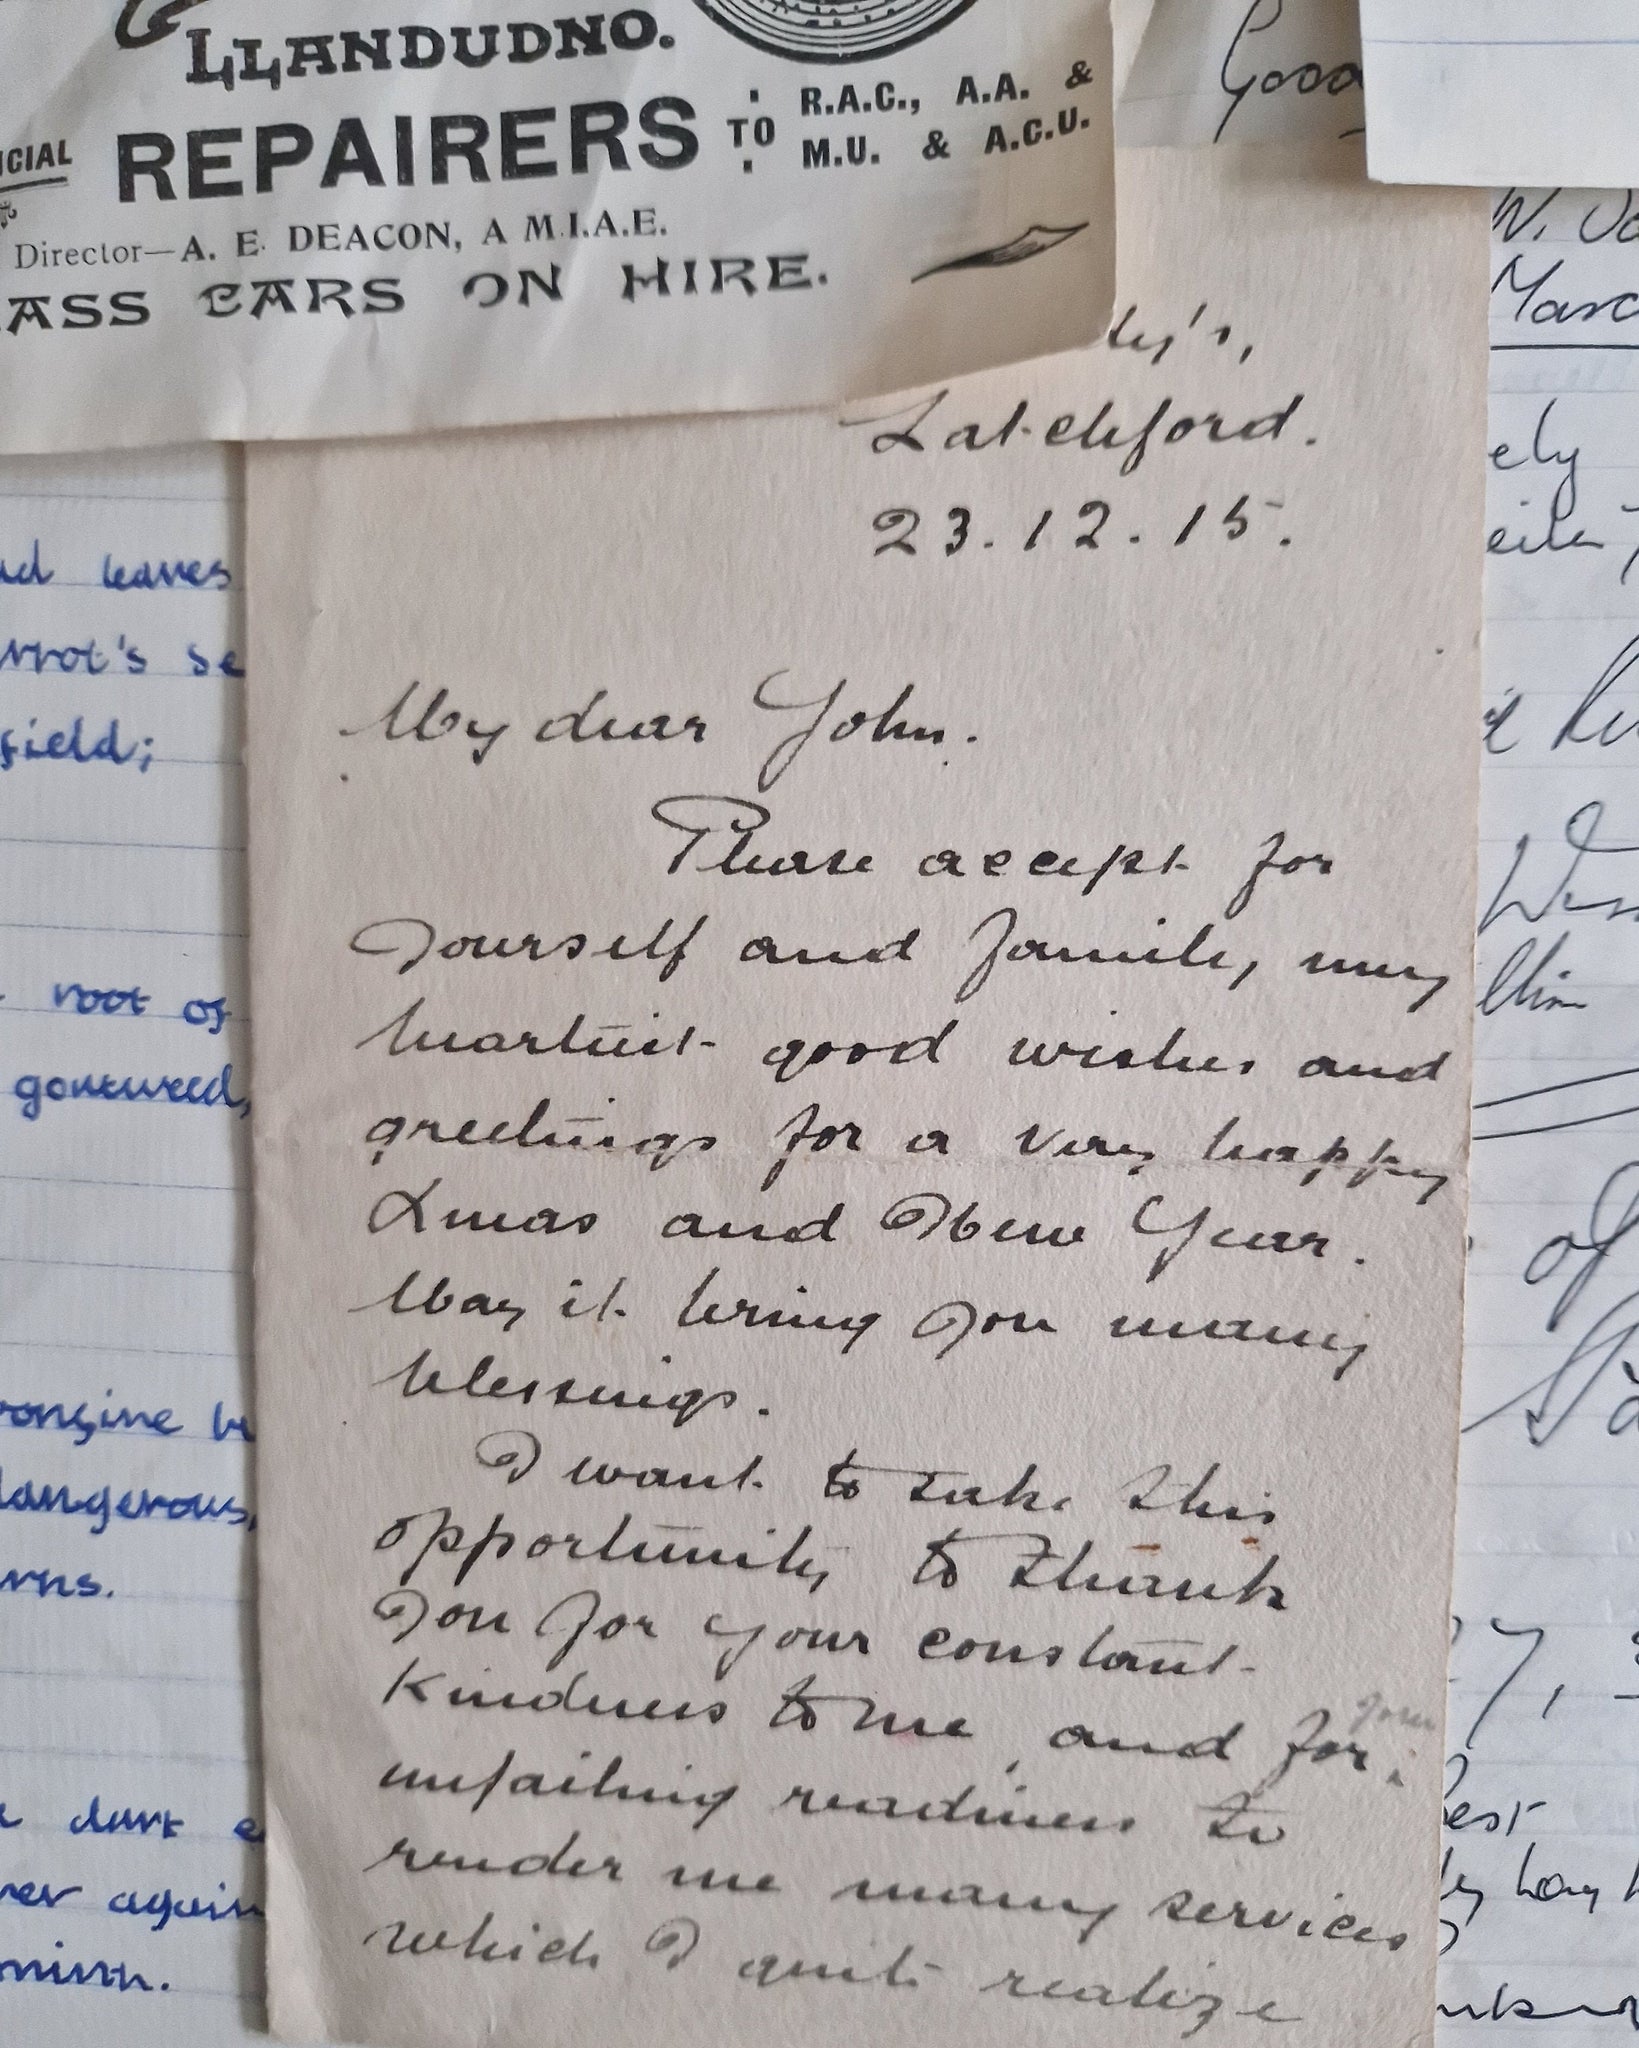 LLANDUDNO.
REPAIRERS TO R.A.C., A.A. &
M.U. & A.C.U.
Director—A. E. DEACON, A M.I.A.E.
CARS ON HIRE.
Latchford.
23.12.15.
My dear John.
Please accept for
yourself and family, my
heartiest good wishes and
greetings for a very happy
Xmas and New Year.
May it bring you many
blessings.
I want to take this
opportunity to thank
you for your constant
kindness to me, and for your
unfailing readiness to
render me many services
which I quite realize
leaves
field;
root of
dangerous,
dark
again
Good
of